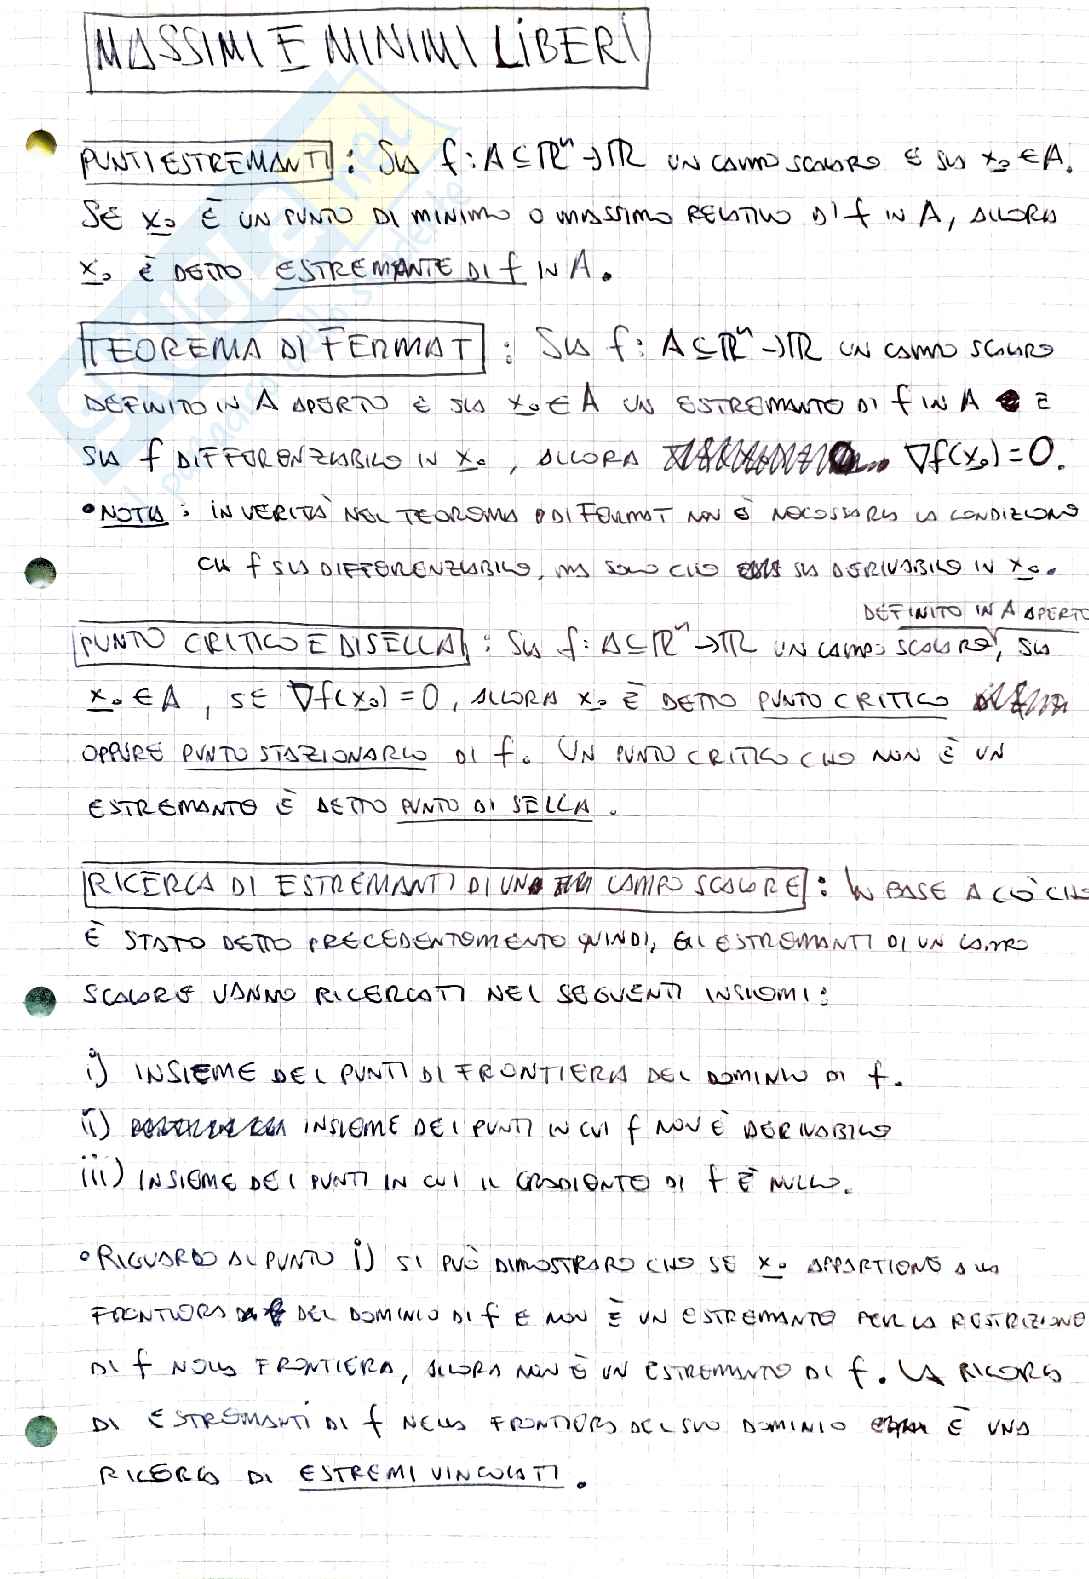 MASSIMI E MINIMI LIBERI
PUNTI ESTREMANTI : SIA f : A ⊆ ℝⁿ → ℝ UN CAMPO SCALARE E SIA x₀ ∈ A.
SE x₀ È UN PUNTO DI MINIMO O MASSIMO RELATIVO DI f IN A, ALLORA
x₀ È DETTO ESTREMANTE DI f IN A.
TEOREMA DI FERMAT : SIA f : A ⊆ ℝⁿ → ℝ UN CAMPO SCALARE
DEFINITO IN A APERTO E SIA x₀ ∈ A UN ESTREMANTE DI f IN A E
SIA f DIFFERENZIABILE IN x₀, ALLORA ∇f(x₀) = 0.
• NOTA : IN VERITÀ NEL TEOREMA DI FERMAT NON È NECESSARIA LA CONDIZIONE
CHE f SIA DIFFERENZIABILE, MA SOLO CHE SIA DERIVABILE IN x₀.
DEFINITO IN A APERTO
PUNTO CRITICO E DI SELLA : SIA f : A ⊆ ℝⁿ → ℝ UN CAMPO SCALARE, SIA
x₀ ∈ A, SE ∇f(x₀) = 0, ALLORA x₀ È DETTO PUNTO CRITICO
OPPURE PUNTO STAZIONARIO DI f. UN PUNTO CRITICO CHE NON È UN
ESTREMANTE È DETTO PUNTO DI SELLA.
RICERCA DI ESTREMANTI DI UN CAMPO SCALARE : IN BASE A CIÒ CHE
È STATO DETTO PRECEDENTEMENTE QUINDI, GLI ESTREMANTI DI UN CAMPO
SCALARE VANNO RICERCATI NEI SEGUENTI INSIEMI :
i) INSIEME DEI PUNTI DI FRONTIERA DEL DOMINIO DI f.
ii) INSIEME DEI PUNTI IN CUI f NON È DERIVABILE
iii) INSIEME DEI PUNTI IN CUI IL GRADIENTE DI f È NULLO.
• RIGUARDO AL PUNTO i) SI PUÒ DIMOSTRARE CHE SE x₀ APPARTIENE ALLA
FRONTIERA DEL DOMINIO DI f E NON È UN ESTREMANTE PER LA RESTRIZIONE
DI f NELLA FRONTIERA, ALLORA NON È UN ESTREMANTE DI f. LA RICERCA
DI ESTREMANTI DI f NELLA FRONTIERA DEL SUO DOMINIO È UNA
RICERCA DI ESTREMI VINCOLATI.